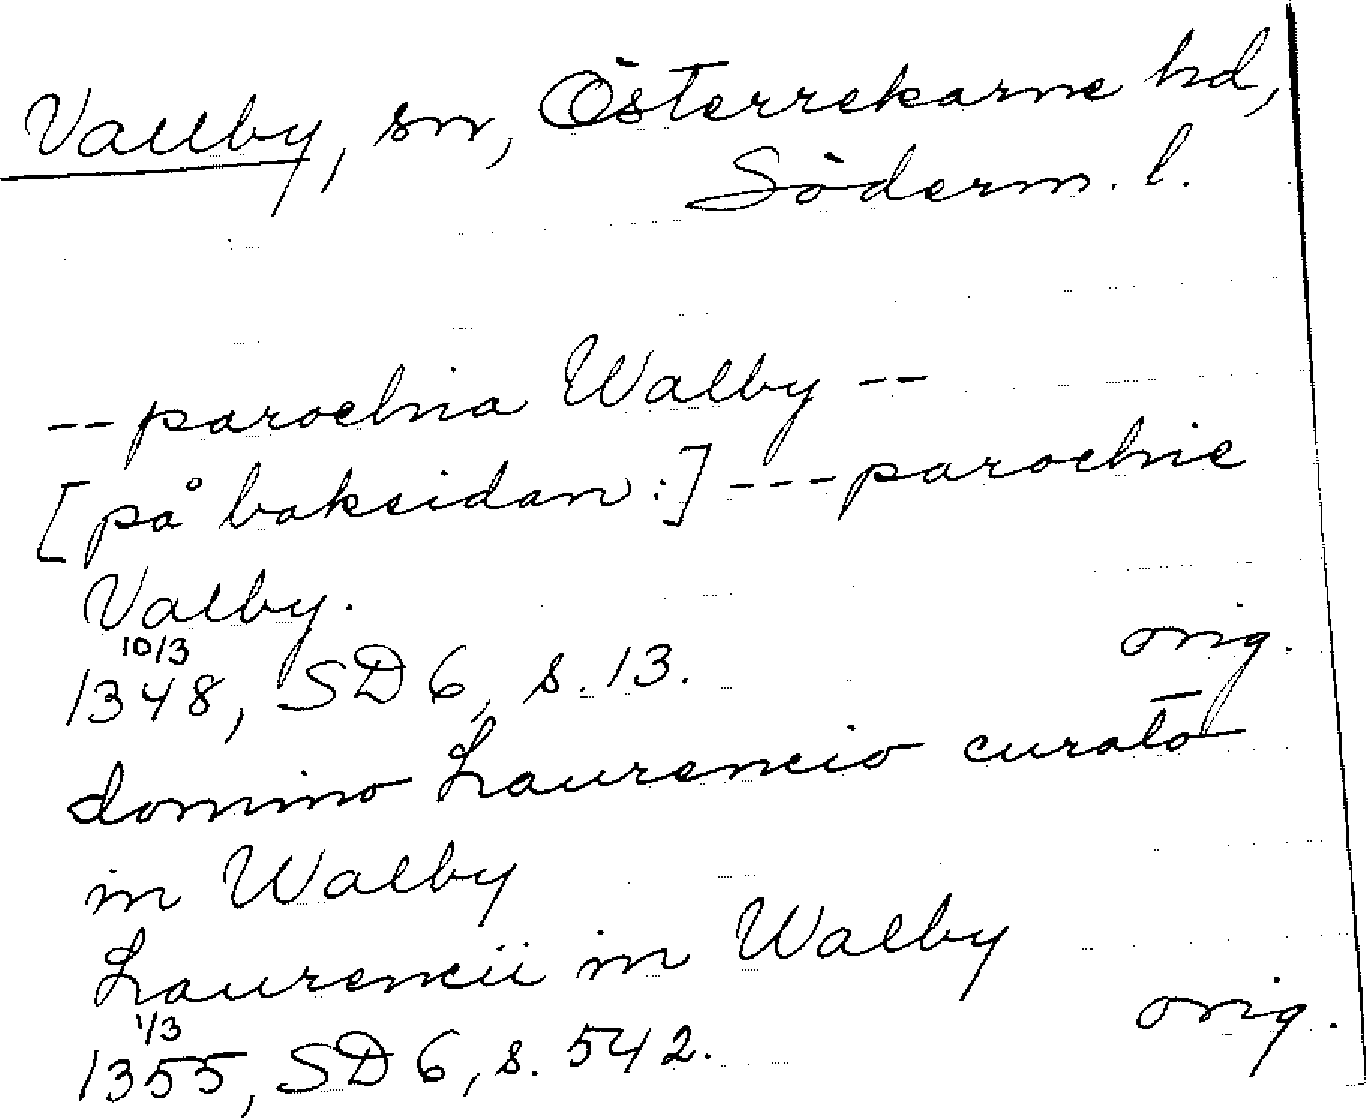 Vallby, sn, Österrekarne hd,
Söderm. l.
-- parochia Walby --
[på baksidan:] --- parochie
Valby.
10/3
1348, SD 6, s. 13. orig.
domino Laurencio curato
in Walby
Laurencii in Walby
1/3
1355, SD 6, s. 542. orig.